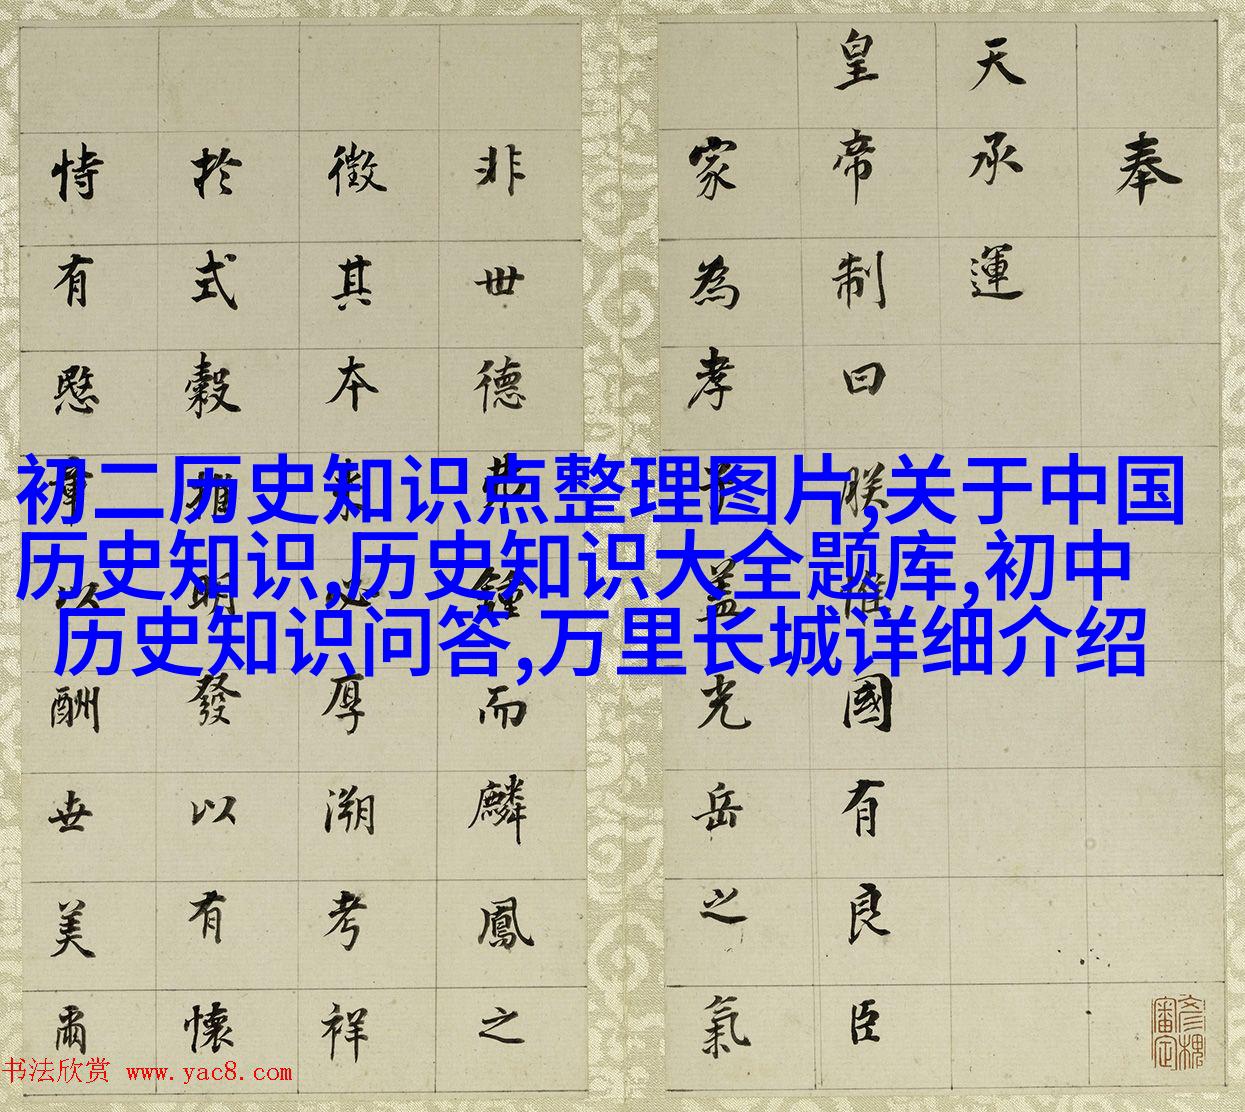 奉
天承運
皇帝制曰朕惟國有良臣
家為孝子蓋光岳之氣
非世德弗鍾而麟鳳之
徵其本來必厚溯考祥
於式穀明發以有懷
恃有愍章以酬世美爾
初二历史知识点整理图片,关于中国
历史知识,历史知识大全题库,初中
历史知识问答,万里长城详细介绍
书法欣赏 www.yac8.com